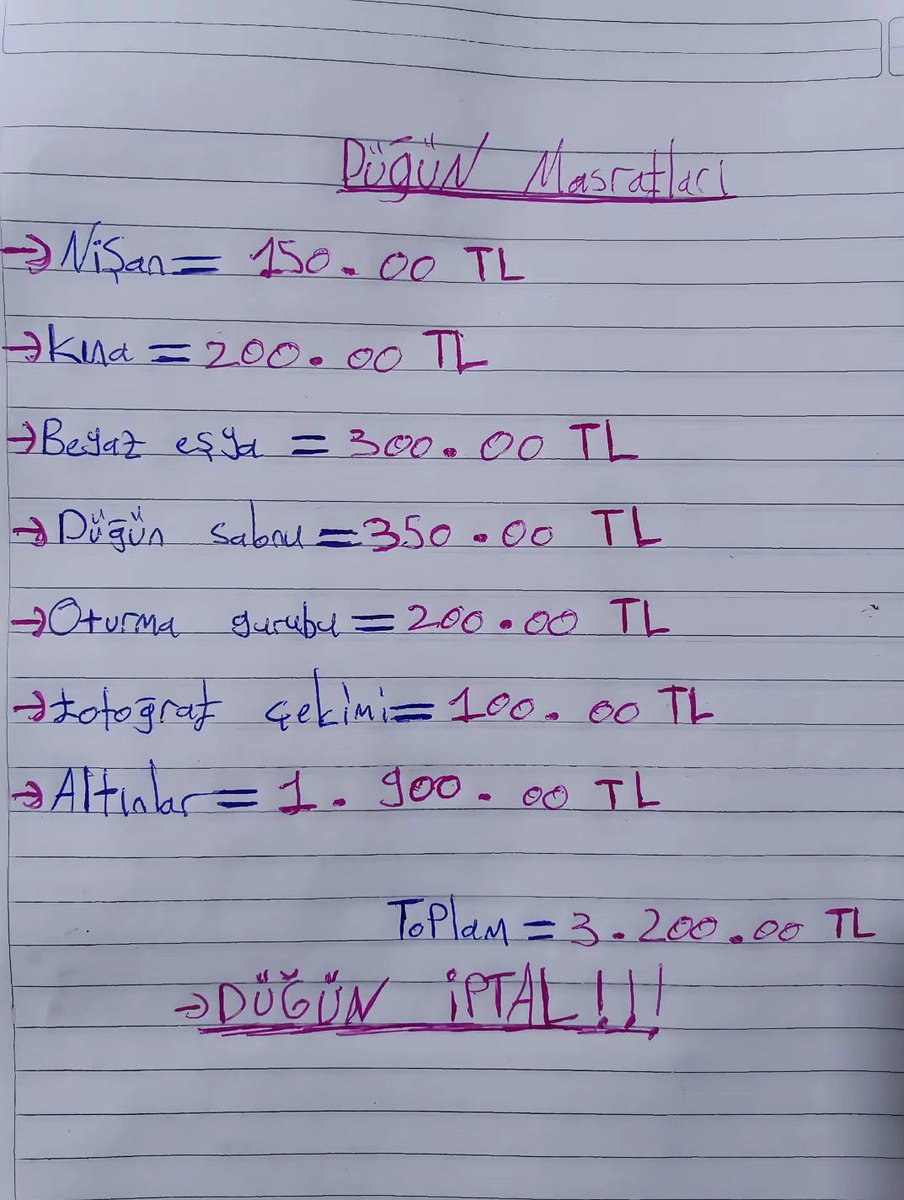 DÜĞÜN Masrafları
→ Nişan = 150.00 TL
→ Kına = 200.00 TL
→ Beyaz eşya = 300.00 TL
→ Düğün salonu = 350.00 TL
→ Oturma gurubu = 200.00 TL
→ fotoğraf çekimi = 100.00 TL
→ Altınlar = 1.900.00 TL
Toplam = 3.200.00 TL
→ DÜĞÜN İPTAL!!!